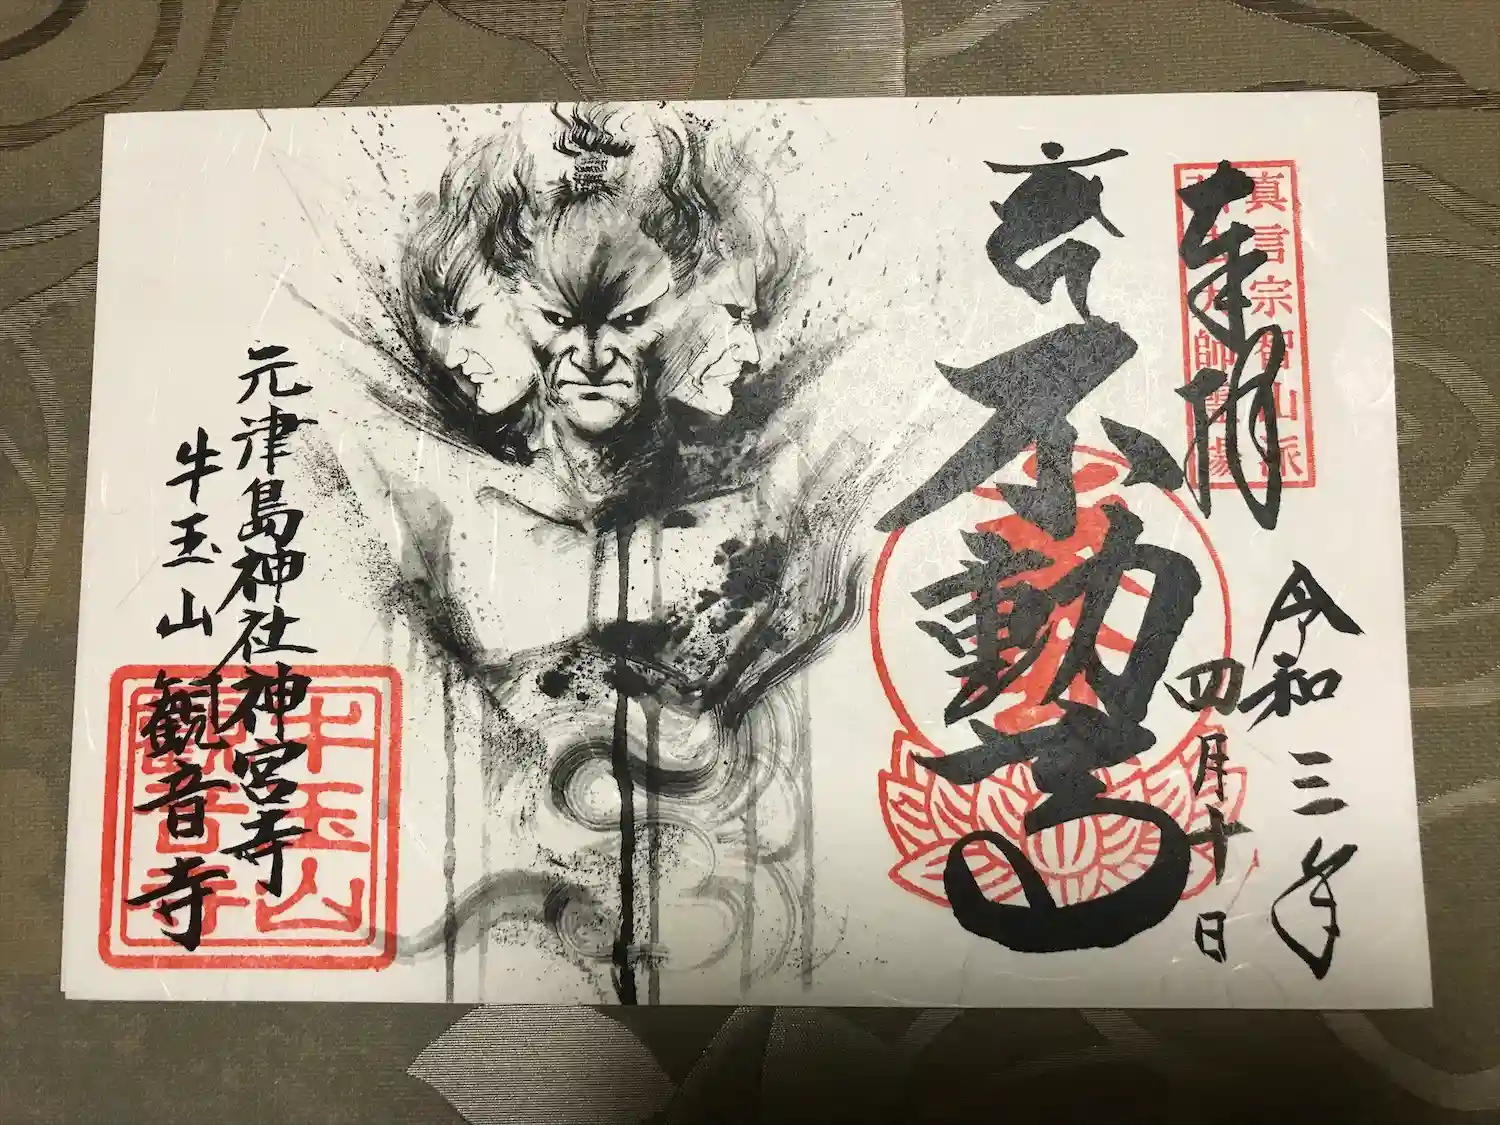 真言宗智山派
大師
奉拝
令和三年
四月十日
不動
元津島神社神宮寺
牛玉山観音寺
牛玉山
観音寺